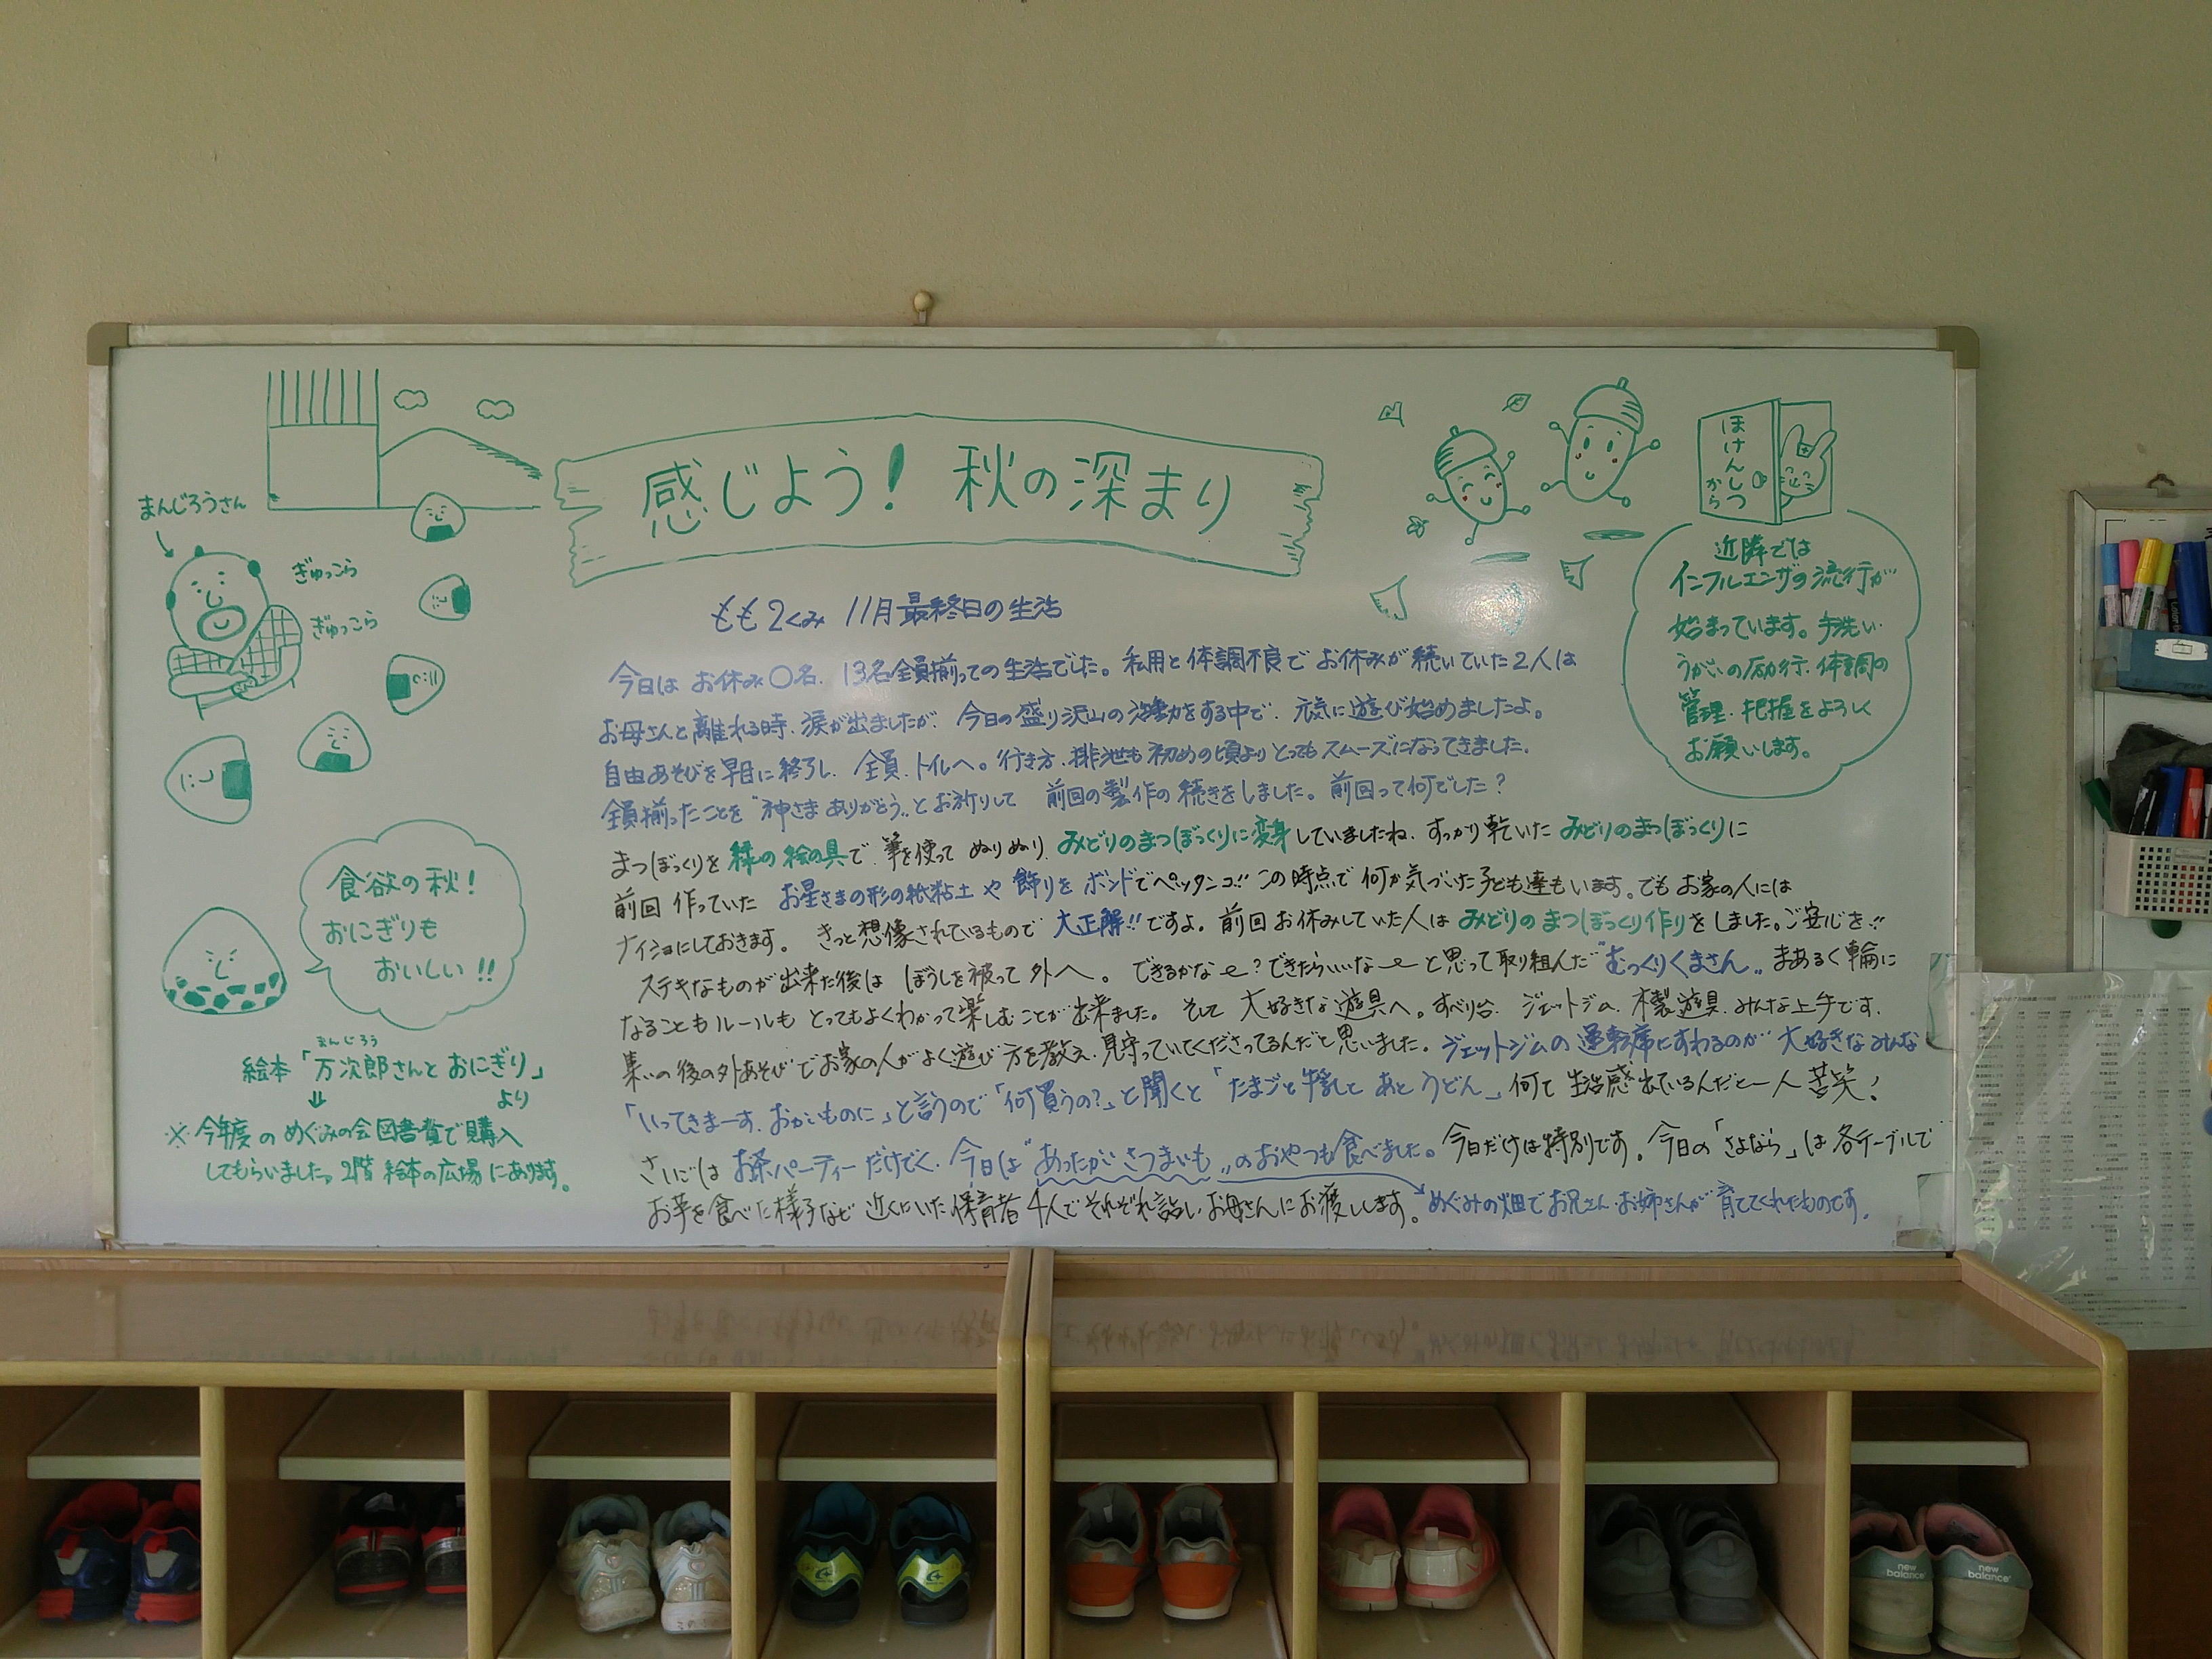 感じよう! 秋の深まり
まんじろうさん
ぎゅっこら
ぎゅっこら
食欲の秋!
おにぎりも
おいしい!!
まんじろう
絵本「万次郎さんと おにぎり」
より
※今年度の めぐみの会図書費で購入
してもらいました。2階 絵本の広場 にあります。
もも2くみ 11月最終日の生活
今日は お休み〇名、13名全員揃っての生活でした。私用と体調不良で お休みが続いていた2人は
お母さんと離れる時、涙が出ましたが、今日の盛り沢山の活動をする中で、元気に遊び始めましたよ。
自由あそびを早目に終了し、全員、トイレへ。行き方、排泄も初めの頃よりとってもスムーズになってきました。
全員揃ったことを“神さまありがとう„とお祈りして 前回の製作の続きをしました。前回って何でした?
まつぼっくりを 緑の絵の具で、筆を使って ぬりぬり、みどりのまつぼっくりに変身していましたね、すっかり乾いた みどりのまつぼっくりに
前回 作っていた お星さまの形の紙粘土や 飾りを ボンドでペッタンコ!! この時点で 何か気づいた子ども達もいます。でも お家の人には
ナイショにしておきます。 きっと想像されているもので 大正解!!ですよ。前回お休みしていた人は みどりのまつぼっくり作りをしました。ご安心を!!
ステキなものが出来た後は ぼうしを被って 外へ。 できるかなぁ〜?できたらいいな〜と思って取り組んだ“むっくりくまさん„ まあるく輪に
なることもルールも とってもよくわかって楽しむことが出来ました。 そして 大好きな 遊具へ。すべり台、ジェットジム、木製遊具、みんな上手です。
集いの後の外あそびでお家の人がよく遊び方を教え、見守っていてくださってるんだと思いました。ジェットジムの運転席にすわるのが 大好きなみんな
「いってきまーす、おかいものに」と言うので「何買うの?」と聞くと「たまごと牛乳と あと うどん」何て 生活感出ているんだと一人苦笑!
さいごは お茶パーティーだけでく、今日は“あったかいさつまいも„のおやつも食べました。今日だけは特別です。今日の「さよなら」は各テーブルで
お芋を食べた様子など 近くにいた保育者4人でそれぞれ話し、お母さんにお渡しします。めぐみの畑でお兄さん・お姉さんが 育ててくれたものです。
ほけんしつ
から
近隣では
インフルエンザの流行が
始まっています。手洗い・
うがいの励行、体調の
管理・把握をよろしく
お願いします。
new balance
new balance